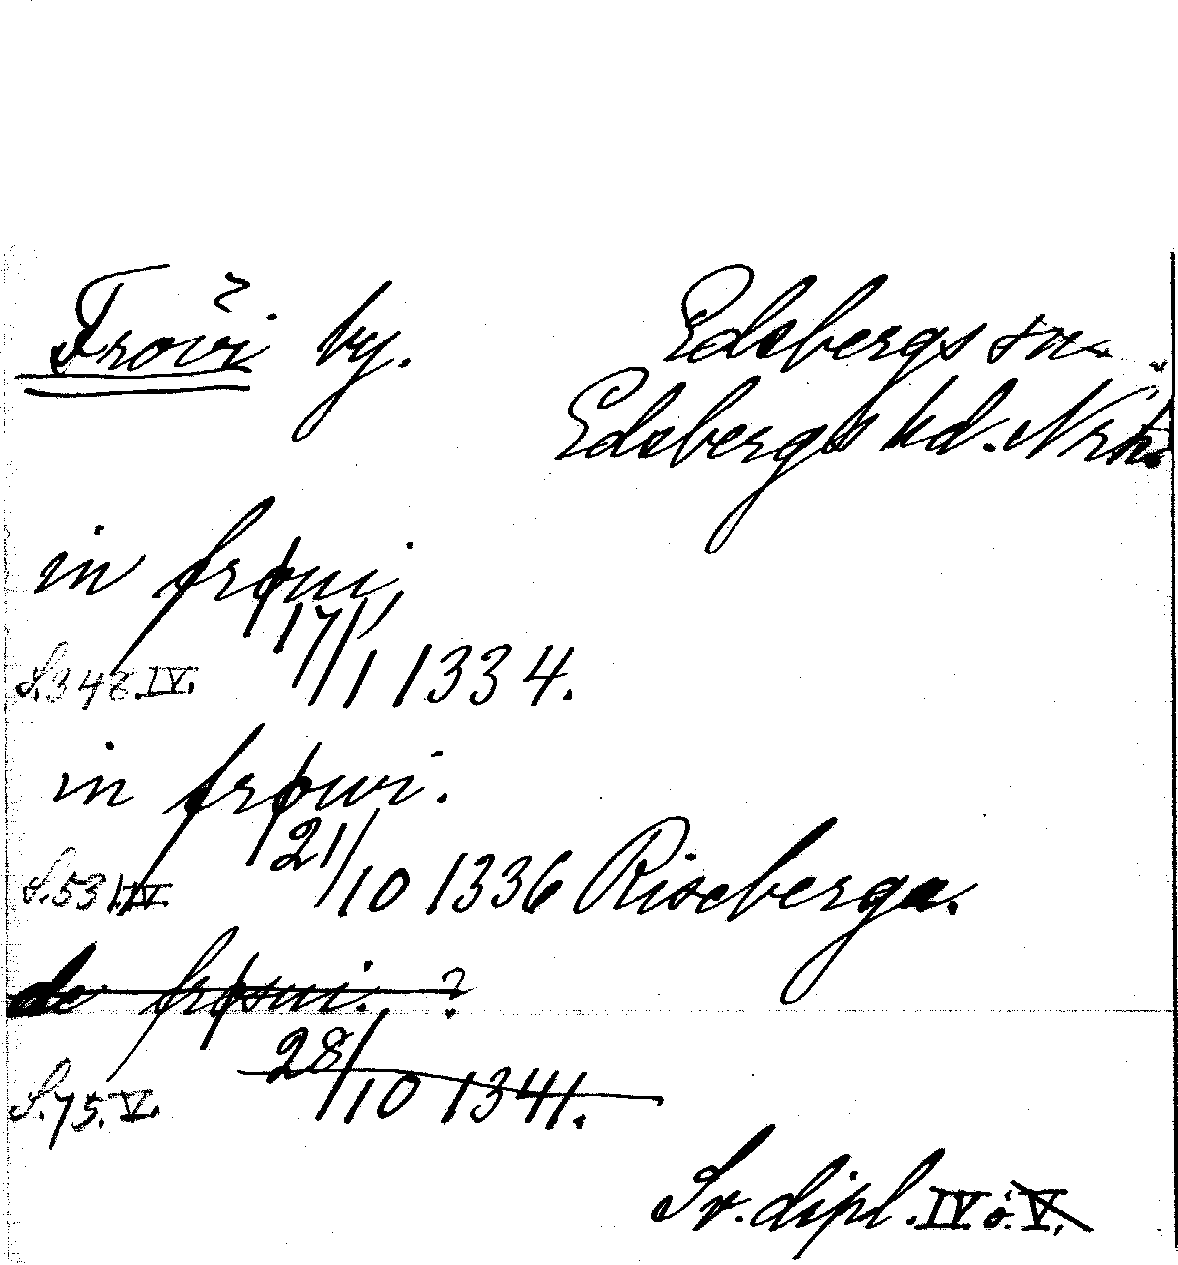 Frövi by. Edsbergs sn.
Edsbergs hd. Nrk.
in frøui,
17/1 1334.
S. 348. IV.
in frøwi.
21/10 1336 Riseberga.
S. 531. IV.
de frøsui. ?
28/10 1341.
S. 75. V.
Sv. dipl. IV. o. V.